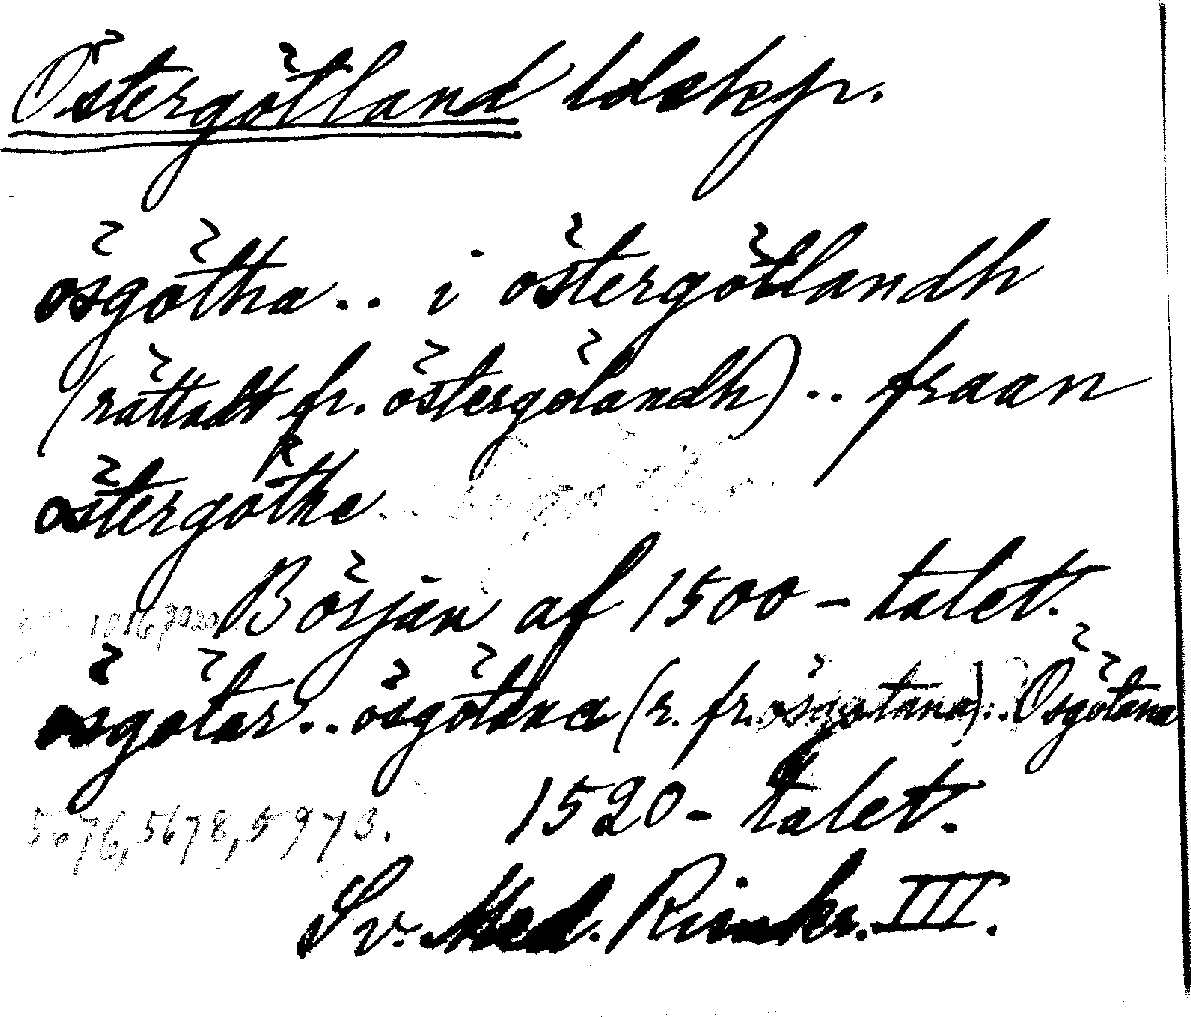 Östergötland ldskp.
ösgötha.. i östergötlandh
(rättadt fr. östergölandh).. fraan
östergöthe
Början af 1500-talet.
ösgötar.. ösgötana (r. fr. ösgotana).. Ösgötana
5676, 5678, 5973. 1520-talet.
Sv. Med. Rimkr. III.